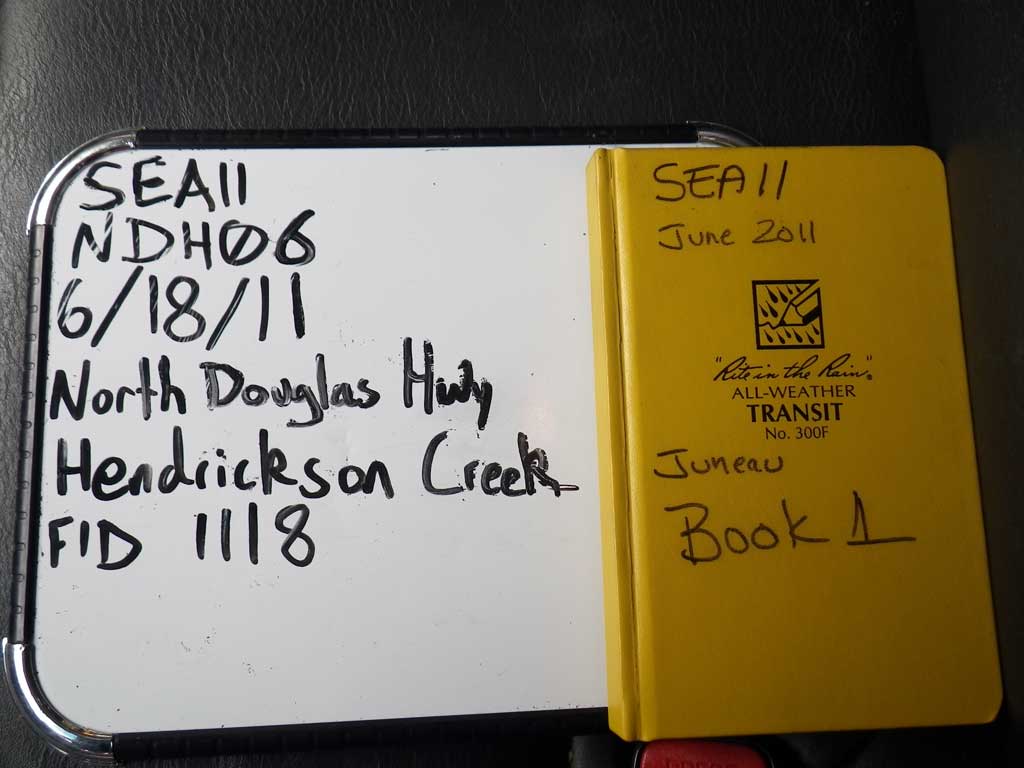 SEA11
NDH06
6/18/11
North Douglas Hwy
Hendrickson Creek
FID 1118
SEA11
June 2011
"Rite in the Rain"®
ALL-WEATHER
TRANSIT
No. 300F
Juneau
Book 1